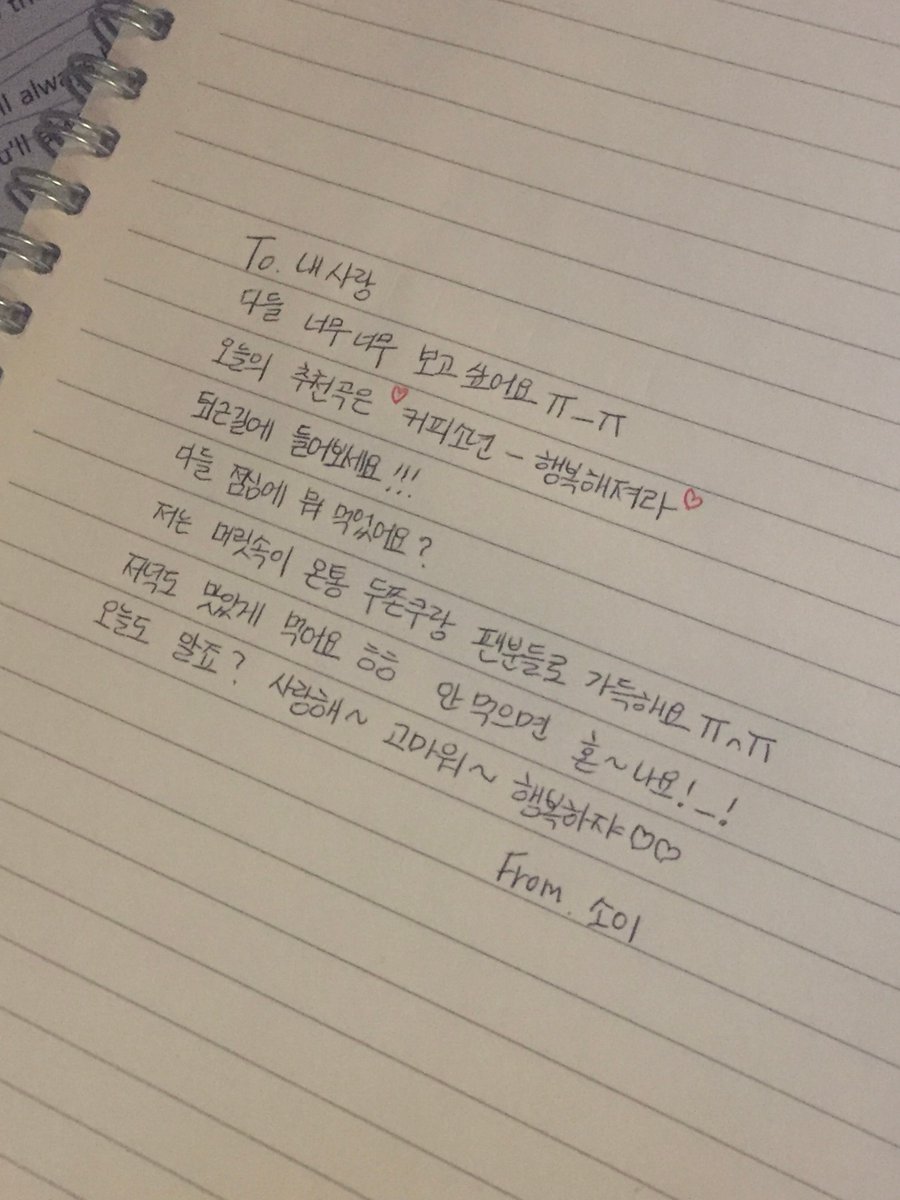 ll alwa
u'll
To. 내사랑
다들 너무너무 보고싶어요 ㅠ_ㅠ
오늘의 추천곡은 ♡커피소년 - 행복해져라♡
퇴근길에 들어보세요!!!
다들 점심에 뭐 먹었어요?
저는 머릿속이 온통 두쫀쿠랑 팬분들로 가득해요 ㅠㅅㅠ
저녁도 맛있게 먹어요 흠흠 안 먹으면 혼~나요!_!
오늘도 알죠? 사랑해~ 고마워~ 행복하쟈♡♡
From. 소이